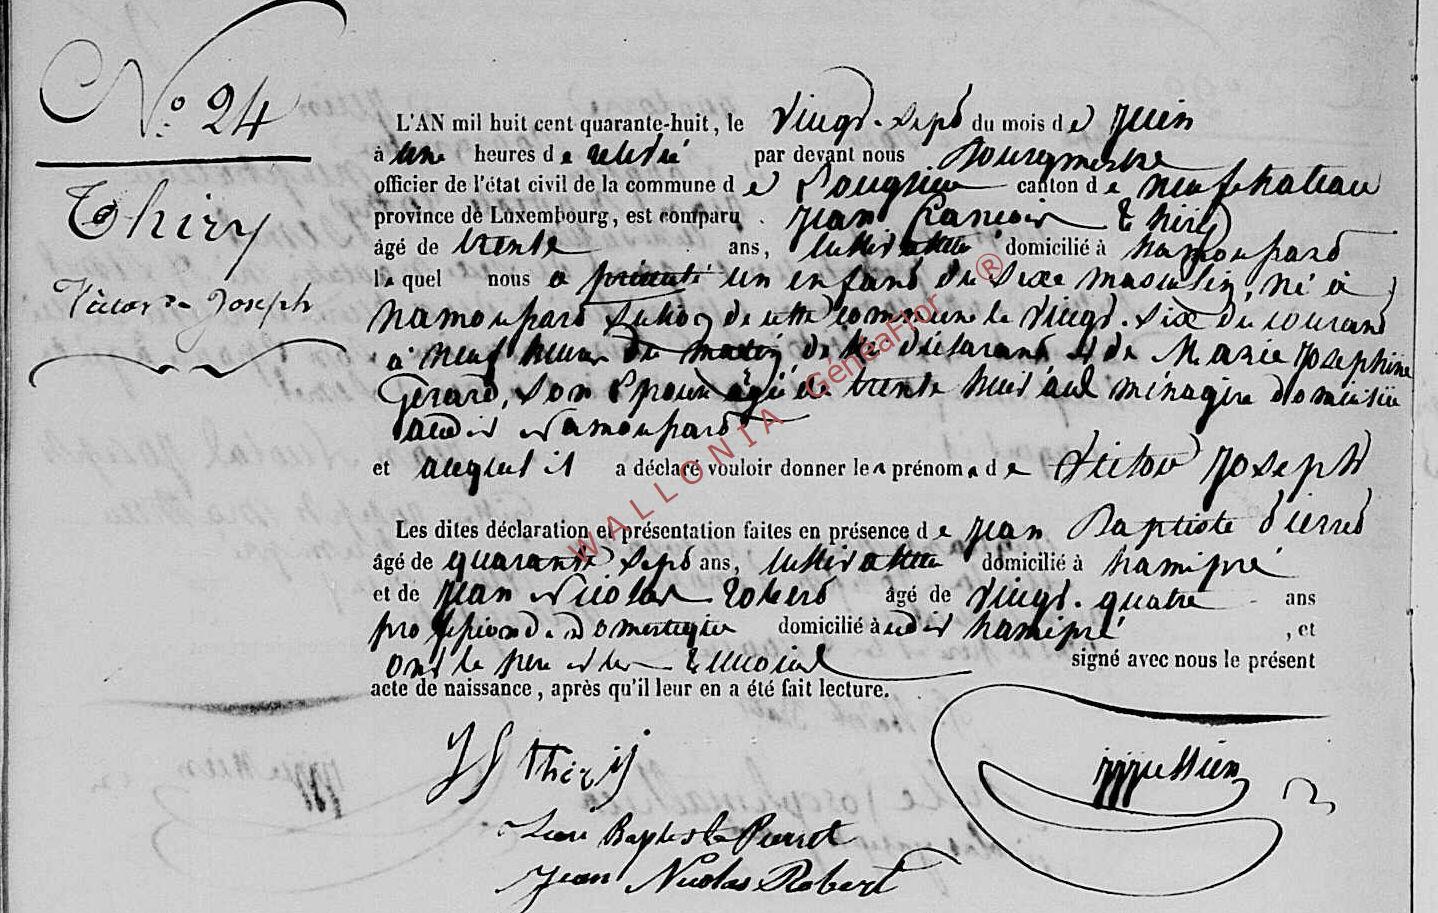 N° 24
Thiry
Victor Joseph
L'AN mil huit cent quarante-huit, le vingt-sept du mois de juin
à une heures de relevé par devant nous Bourgmestre
officier de l'état civil de la commune de Longlier canton de neufchateau
province de Luxembourg, est comparu jean francois thiry
âgé de trente ans, cultivateur domicilié à namoupard
le quel nous a présenté un enfant du sexe masculin, né à
namoupard section de cette commune le vingt-six du courant
à neuf heures du matin de lui déclarant et de Marie josephine
Gerard, son Epouse agée de trente huit ans ménagère domiciliée
audit namoupard
et auquel il a déclaré vouloir donner les prénoms de Victor joseph
Les dites déclaration et présentation faites en présence de jean Baptiste Pierret
âgé de quarante sept ans, cultivateur domicilié à hamipré
et de jean Nicolas Robert âgé de vingt-quatre ans
profession de domestique domicilié à audit hamipré, et
ont le père et les témoins signé avec nous le présent
acte de naissance, après qu'il leur en a été fait lecture.
JF thiry
Jean Baptiste Pierret
Jean Nicolas Robert
WALLONIA GénéaFlor ®